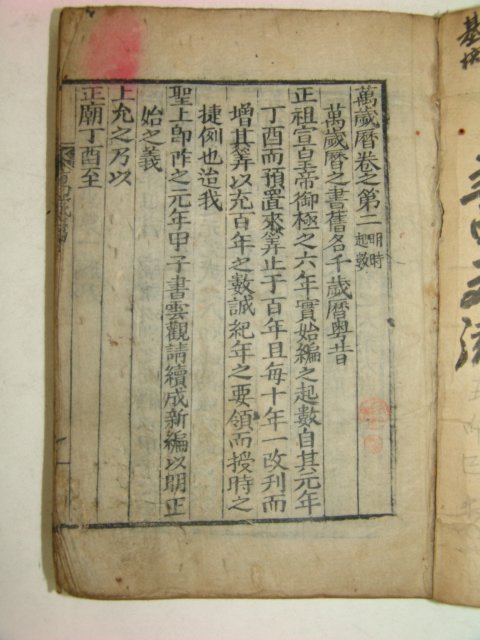 萬歲曆卷之第二 明時
起數
萬歲曆之書舊名千歲曆粤昔
正祖宣皇帝御極之六年實始編之起數自其元年
丁酉而預置來筭止于百年且每十年一改刋而
增其筭以充百年之數誠紀年之要領而授時之
捷例也迨我
聖上卽阼之元年甲子書雲觀請續成新編以明正
始之義
上允之乃以
正廟丁酉至